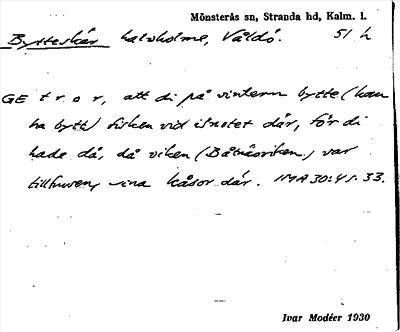 Mönsterås sn, Stranda hd, Kalm. l.
Bytteskär halvholme, Våldö. 51 h
GE t r o r, att di på vintern bytte (kan
ha bytt) fisken vid isnotet där, för di
hade då, då viken (Båtnäsviken) var
tillfrusen, sina kåsor där. IMA 30:45. 33.
Ivar Modéer 1930